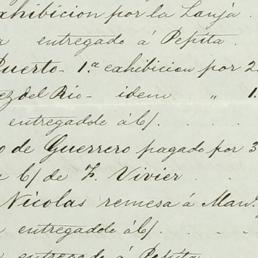 xhibicion por la Lanja.
a entregado á Pepita.
Puerto - 1.ª exhibicion por 2
ez del Rio - idem " 1.
entregadole á 6/.
o de Guerrero pagado por 3
6/ de F. Vivier
Nicolas remesa á Man.
entregadole á 6/.
entregado á Pepita